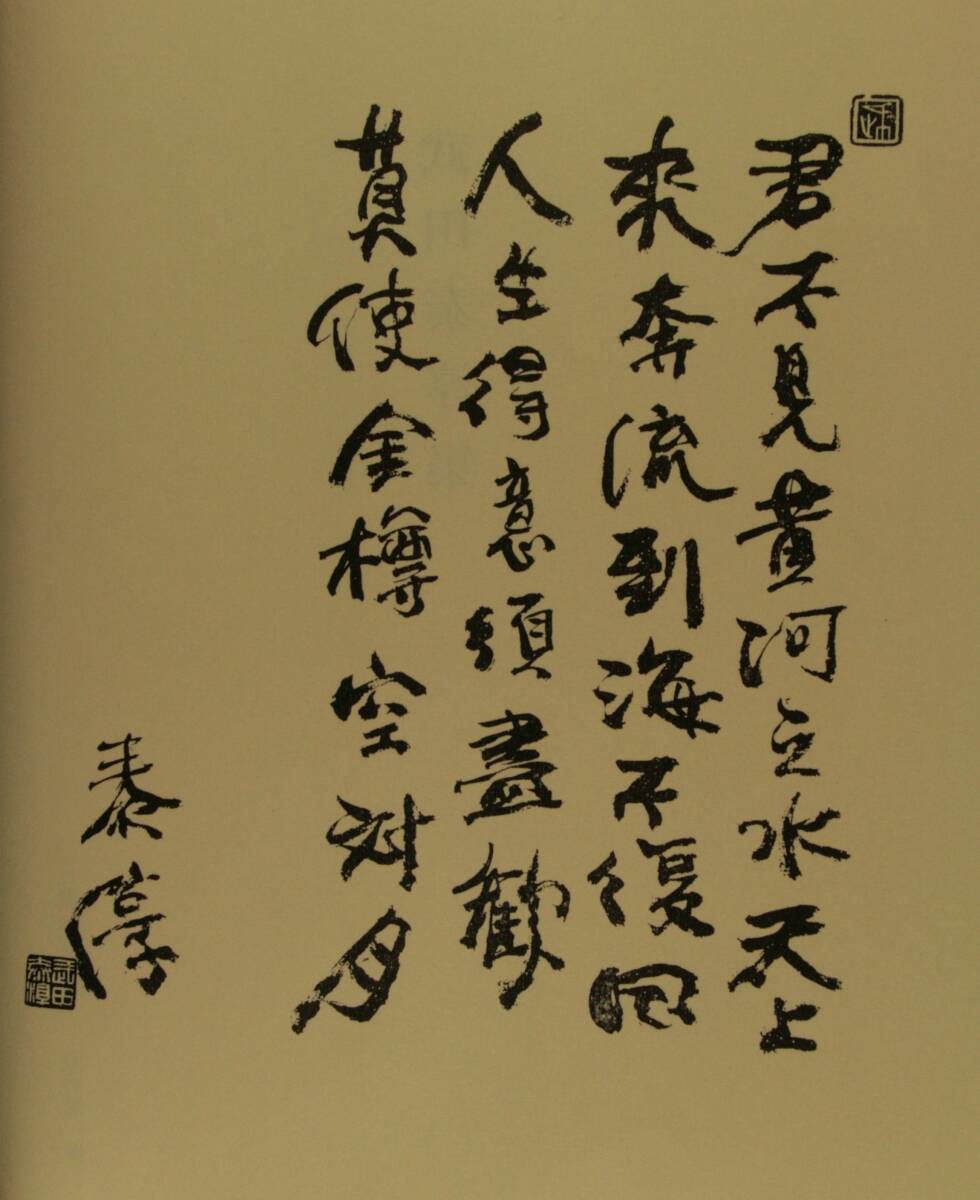 君不見黄河之水天上
来奔流到海不復回
人生得意須盡歡
莫使金樽空対月
泰淳
武田
泰淳